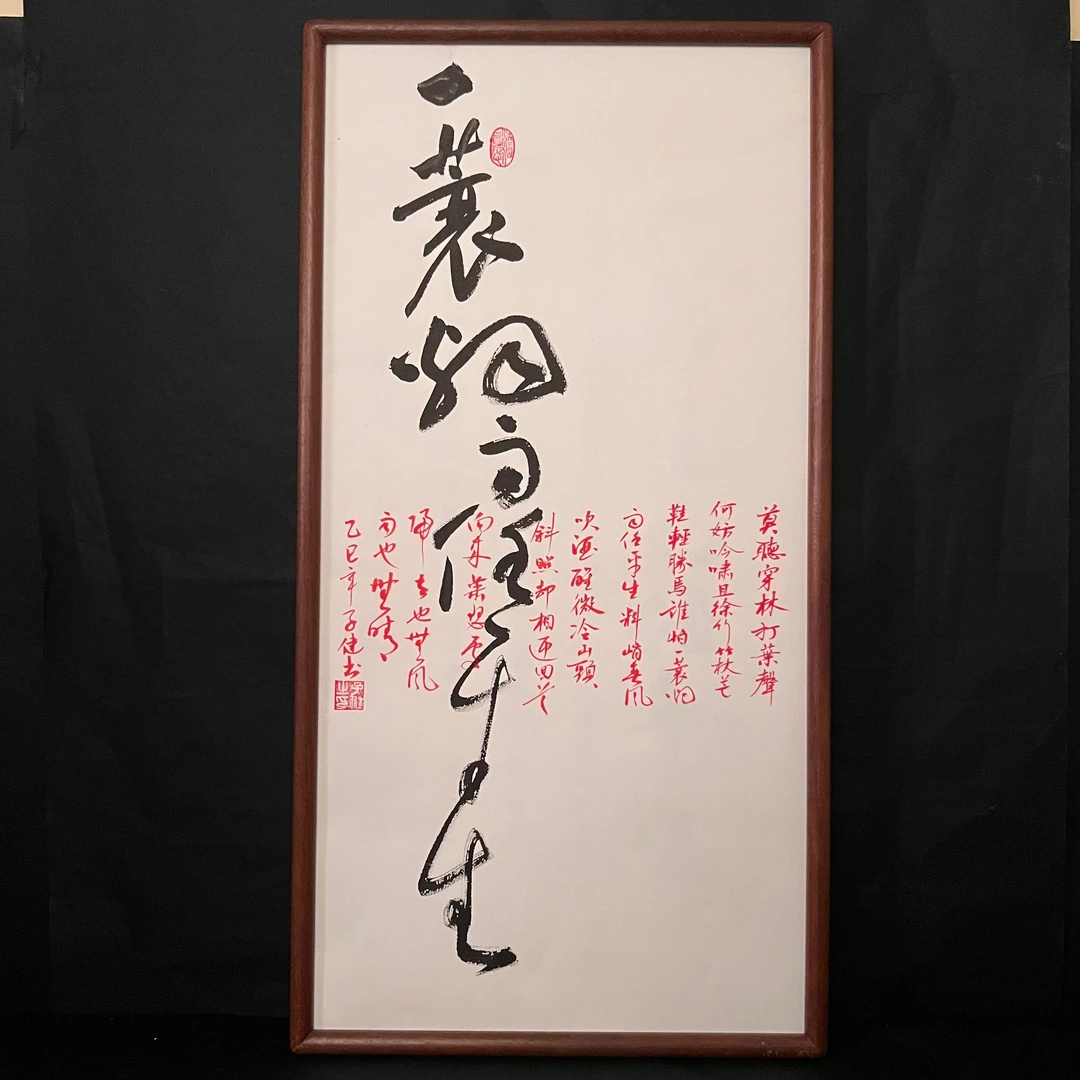 一蓑烟雨任平生
莫聽穿林打葉聲
何妨吟嘯且徐行竹杖芒
鞋輕勝馬誰怕一蓑烟
雨任平生料峭春風
吹酒醒微冷山頭
斜照却相迎回首
向來蕭瑟處
歸去也無風
雨也無晴
乙巳年子健書